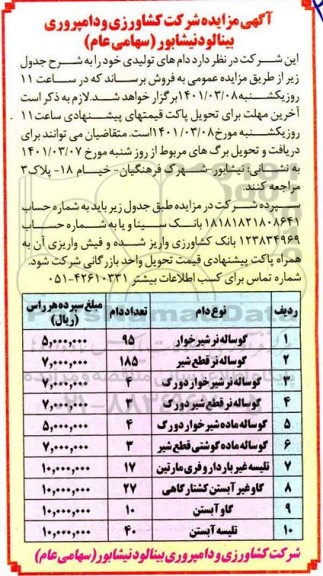 آگهی مزایده شرکت کشاورزی و دامپروری
بینالود نیشابور (سهامی عام)
این شرکت در نظر دارد دام های تولیدی خود را به شرح جدول
زیر از طریق مزایده عمومی به فروش برساند که در ساعت ۱۱
روز یکشنبه ۱۴۰۱/۰۳/۰۸ برگزار خواهد شد. لازم به ذکر است
آخرین مهلت برای تحویل پاکت قیمتهای پیشنهادی ساعت ۱۱
روز یکشنبه مورخ ۱۴۰۱/۰۳/۰۸ است. متقاضیان می توانند برای
دریافت و تحویل برگ های مربوط از روز شنبه مورخ ۱۴۰۱/۰۳/۰۷
به نشانی: نیشابور- شهرک فرهنگیان- خیام ۱۸- پلاک ۳
مراجعه کنند.
سپرده شرکت در مزایده طبق جدول زیر باید به شماره حساب
۱۸۱۸۱۸۲۱۸۰۸۶۴۱ بانک سینا و یا به شماره حساب
۱۲۳۸۳۴۹۶۹ بانک کشاورزی واریز شده و فیش واریزی آن به
همراه پاکت پیشنهادی قیمت تحویل واحد بازرگانی شرکت شود.
شماره تماس برای کسب اطلاعات بیشتر ۴۲۶۱۰۳۳۱-۰۵۱
ردیف نوع دام تعداد دام مبلغ سپرده هر راس (ریال)
۱ گوساله نر شیرخوار ۹۵ ۵,۰۰۰,۰۰۰
۲ گوساله نر قطع شیر ۱۸۵ ۷,۰۰۰,۰۰۰
۳ گوساله نر شیرخوار دورگ ۴ ۷,۰۰۰,۰۰۰
۴ گوساله نر قطع شیر دورگ ۳ ۷,۰۰۰,۰۰۰
۵ گوساله ماده شیرخوار دورگ ۴ ۵,۰۰۰,۰۰۰
۶ گوساله ماده گوشتی قطع شیر ۳ ۷,۰۰۰,۰۰۰
۷ تلیسه غیر باردار و فری مارتین ۱۷ ۱۰,۰۰۰,۰۰۰
۸ گاو غیر آبستن کشتارگاهی ۲۷ ۱۰,۰۰۰,۰۰۰
۹ گاو آبستن ۱۰ ۱۰,۰۰۰,۰۰۰
۱۰ تلیسه آبستن ۴۰ ۱۰,۰۰۰,۰۰۰
شرکت کشاورزی و دامپروری بینالود نیشابور (سهامی عام)